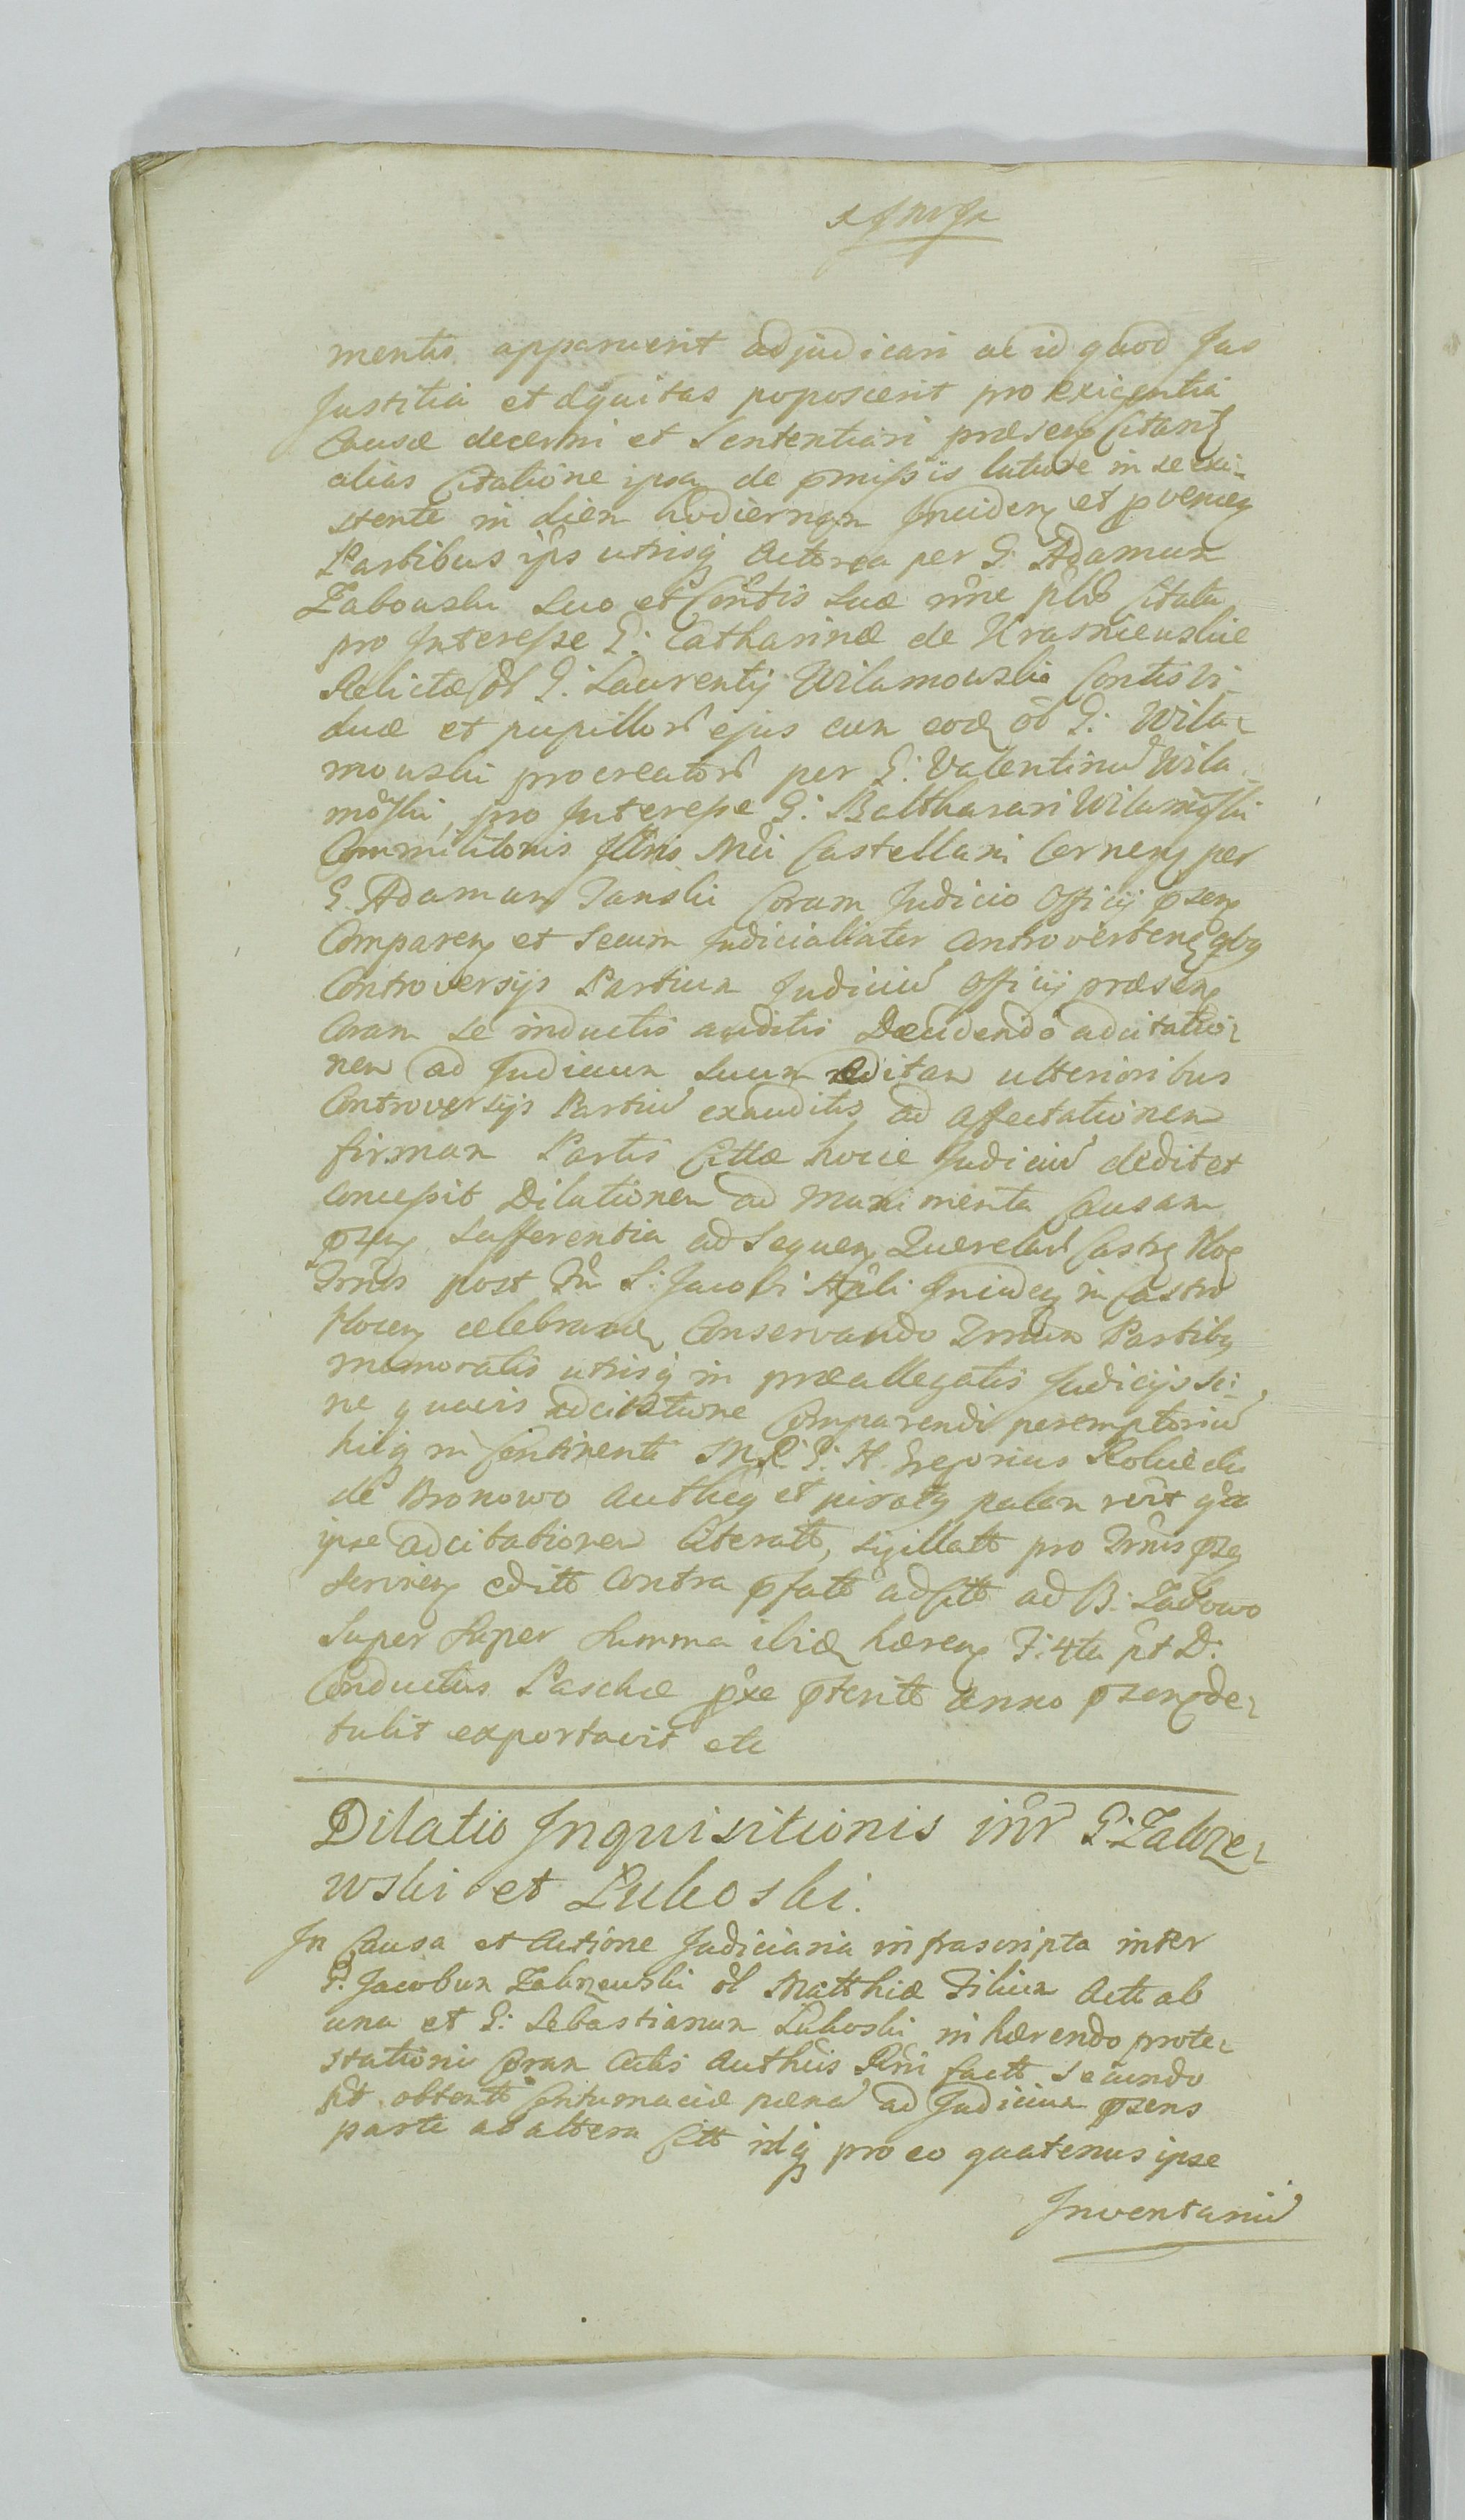 mentis apparuerit adjudicari ac id quod Jus
Justitia et æquitas poposcerit pro exigentia
Causæ decerni et Sententiari præsen Citan
alias Citatione ipsa de pmissis latiore in se exi-
stente in diem hodiernam Inciden et pvenien
Partibus ips utrisq Actorea per G: Adamum
Zabowski Suo et Contis Suæ nne Citata
pro Interesse G: Catharinæ de Krasniewskie
Relictæ ol G: Laurentij Wilamowski Contis Vi-
duæ et pupillor ejus cum eod ol G: Wila-
mowski procreator per G: Valentinu Wila-
moski, pro Interesse G: Balthasari Wilamoski
Commilitonis Illris Mci Castellani Cernen per
G. Adamum Janski Coram Judicio Officij psen
Comparen et Secum Judicialiater Controverten qbg
Controversijs Partium Judiciu Officij præsen
Coram se inductis auditis Decidendo adcitatio-
nem ad Judicium Suum editam ulterioribus
Controversijs Partiu exauditis ad affectationem
firmam Partis Cittæ hocce Judiciu dedit et
Concessit Dilationem ad Munimenta Causam
psen Sufferentia ad Sequen Querelar Castr Ploc
Trnis post Fm S: Jacobi Apli Inciden in Castro
Plocen celebrand Conservando Trnum Partibg
memoratis utrisq in præallegatis Judicijs Si-
ne quavis adcitatione Comparendi peremptoriu
hicq in Continenti M.R: P: H. Gregorius Rokicki
de Bronowo Authen et juratg palam rcvit qa
ipse adcitationem literatt, sigillatt pro Trnis psen
Servien editt Contra pfatt adcitt ad B: Zabowo
Super Super Summa ibid hæren F: 4ta pt D:
Conductus Paschæ pxe pteritt anno psen de-
tulit exportavit etc
Dilatio Inquisitionis intr G: Zakrze-
wski et Lukoski.
In Causa et Actione Judiciaria infrascripta inter
G: Jacobum Zakrzewski ol Matthiæ Filium Actt ab
una et G: Sebastianum Lukoski inhærendo prote-
stationi Coram Actis Authcis factt Secundo
pt obtentt Contumaciæ pænæ ad Judicium psens
parte ab altera Citt idq pro eo quatenus ipse
Inventariu